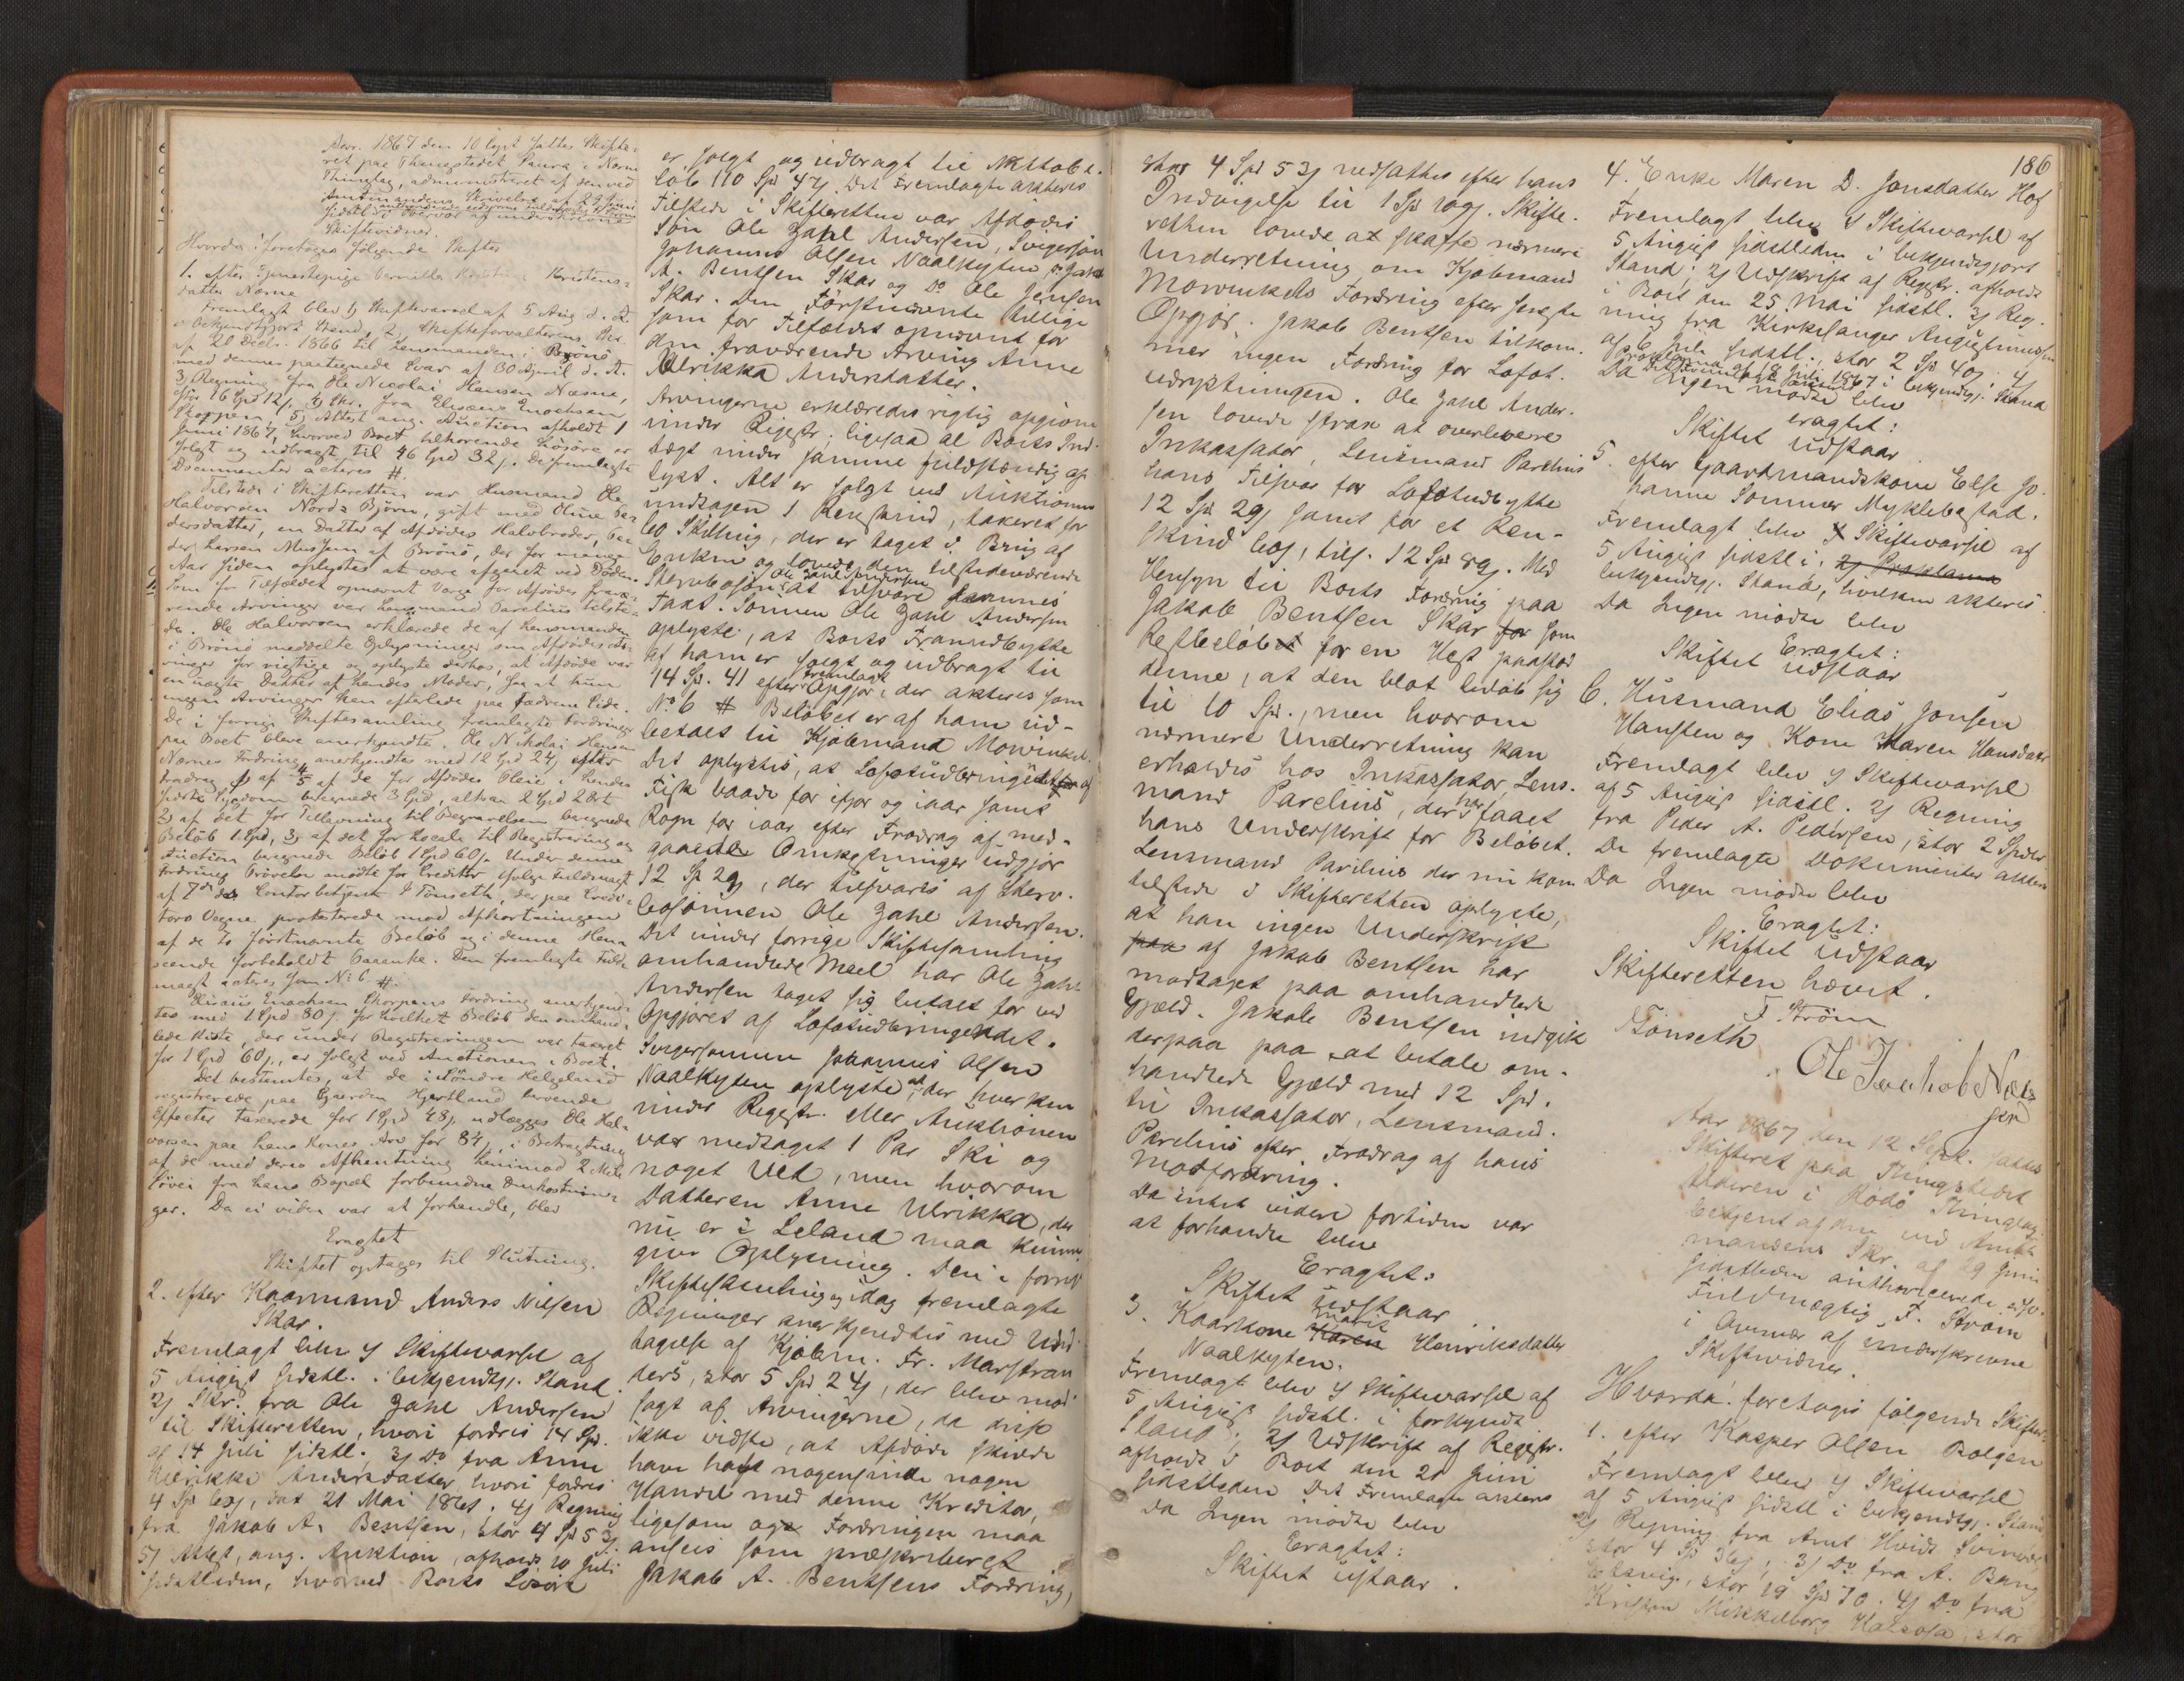 Aar 1867 den 10 Sept sattes Skifte-
ret paa Thingstedet i Næsna
Thinglag, administreret af den ved
Amtmandens Skrivelse af 29 Juni
sidstl.
Overvær af underskrevne
Skiftevidner.
Hvorda i foretoges følgende Skifter
1. efter Tjenestepige Pernilla Kristens-
datter Næsna
Fremlagt blev 1) Skiftevarsel af 5 Aug d. A.
i bekjendtgjort Stand, 2) Skifteforvalterens Skr.
af 21 Dec. 1866 til Lensmanden i Brønø
med dennes paategnede Svar af 30 April d. A.
3) Regning fra Ole Nicolai Hansen Næsna,
stor 16 Spd 12 ß. 4) Skr. fra Elisæus Enochsen
Skorpen, 5) Attest ang. Auction afholdt 1
Juni 1867, hvorved Boet tilhørende Løsøre er
solgt og udbragt til 46 Spd 32 ß. De fremlagte
Documenter acteres #.
Tilstede i Skifteretten var Husmand Ole
Halvorsen Nords Bjørn, gift med Oline Pe-
dersdatter, en Datter af Afdødes Halvbroder, Pe-
der Larsen af Brønø, der for mange
Aar siden oplystes at være afgaaet ved Døden.
Som for Tilfældet opnævnt Værge for Afdødes fravæ-
rende Arvinger var Lensmand Parelius tilste-
de. Ole Halvorsen erklærede de af Lensmanden
i Brønø meddelte Oplysninger om Afdødes Ar-
vinger for rigtige og oplyste derhos, at Afdøde var
en uægte Datter af hendes Moder, saa at hun
ingen Arvinger kan efterlade paa Fædrene Side.
De i forrige Skiftesamling fremlagte Fordringer
paa Boet bleve anerkjendte. Ole Nikolai Hansen
Næsnes Fordring anerkjendtes med 12 Spd 24 ß efter
Fradrag 1) af 4/5 af de for Afdødes Pleie i hendes
sidste Sygdom beregnede 3 Spd, altsaa 2 Spd 2 Ort
2) af det for Tillavning til Begravelsen beregnede
Beløb 1 Spd, 3) af det for Locale til Registrering og
Auction beregnede Beløb 1 Spd 60 ß. Under denne
Fordrings Prøvelse mødte for Creditor ifølge Fuldmagt
af 7 ds Contorbetjent P Tønseth, der paa Credi-
tors Vegne protesterede mod Afkortningen
af de To førstnævnte Beløb og i denne Hen-
seende forbeholdt Paaanke. Den fremlagte Fuld-
magt acteres som No 6 #.
Enochsen Skorpens Fordring anerkjend-
tes med 1 Spd 80 ß, for hvilket Beløb den omhand-
lede Kiste, der under Registreringen var taxeret
for 1 Spd 60 ß, er solgt ved Auctionen i Boet.
Det bestemtes, at de i Søndre Helgeland
registrerede paa Gaarden Hjartland beroende
Effecter taxerede for 1 Spd 48 ß udlægges Ole Hal-
vorsen paa hans Kones Arv for 84 ß, i Betragtning
af de med deres Afhentning henimod 2 Mile
fra hans Bopæl forbundne Omkostnin-
ger. Da ei videre var at forhandle, blev
Eragtet
Skiftet optages til Slutning.
2. efter Kaarmand Anders Nilsen
Skar.
Fremlagt blev 1) Skiftevarsel af
5 August sidstl. i bekjendtgj. Stand
2) Skr. fra Ole Zahl Andersen
til Skifteretten, hvori fordres 14 Spd.
af 14 Juli sidstl. 3) Do fra Anne
Ulrikke Andersdatter hvori fordres
4 Spd 60 ß, dat 21 Mai 1861. 4) Regning
fra Jakob A. Bentsen, stor 4 Spd 53 ß.
5) Attest, ang. Auktion, afholdt 10 Juli
sidstleden, hvorved Boets Løsøre
er solgt og udbragt til Netto be-
løb 110 Spd 47 ß. Det Fremlagte akteres
Tilstede i Skifteretten var Afdødes
Søn Ole Zahl Andersen, Svigersøn
Johannes Olsen Naalkyten
A. Bentsen Skar og Do Ole Jensen
Skar. Den Førstnævnte tillige
som for Tilfældet opnævnt for
den fraværende Arving Anne
Ulrikka Andersdatter.
Arvingerne erklæredes rigtig opgivne
under Registr; ligesaa al Boets Ind-
tægt under samme fuldstændig op-
lyst. Alt er solgt ved Auktionen
undtagen 1 Renskind, takseret for
60 Skilling, der er taget i Brug af
Enken og lovede den tilstedeværende
Stervbosøn Ole Zahl Andersen at tilsvare sammes
Taxt. Sønnen Ole Zahl Andersen
oplyste, at Boets Framudbytte
af ham er solgt og udbragt til
14 Sp. 41 efter fremlagt Opgjør, der akteres som
No 6 # Beløbet er af ham ud-
betalt til Kjøbmand Mowinkel.
Det oplystes, at Lofotudbringendet af
Fisk baade for ifjor og iaar samt
Rogn for iaar efter Fradrag af med-
gaaede Omkostninger udgjør
12 Sp 29 ß, der tilsvares af Sterv-
bosønnen Ole Zahl Andersen.
Det under forrige Skiftesamling
omhandlede Meel har Ole Zahl
Andersen taget sig betalt for ved
Opgjøret af Lofotudbringendet.
Svigersønnen Johannes Olsen
Naalkyten oplyste at der hverken
under Registr. eller Auktionen
var medtaget 1 Par Ski og
noget Ved, men hvorom
Datteren Anne Ulrikka, der
nu er i Leland maa kunne
give Oplysning. Den i forrige
Skiftesamling og idag fremlagte
Regninger anerkjendtes med Und-
tagelse af Kjøbm. Fr. Marstran-
ders, stor 5 Spd 24 ß, der blev mod-
sagt af Arvingerne, da disse
ikke vidste, at Afdøde skulde
have havt nogensinde nogen
Handel med denne Kreditor,
ligesom og Fordringen maa
ansees som præskriberet
Jakob A. Bentsens Fordring,
186
stor 4 Spd 53 ß nedsattes efter hans
Indvigelse til 1 Spd 109 ß. Skifte-
retten lovede at skaffe nærmere
Underretning om Kjøbmand
Mowinkels Fordring efter seneste
Opgjør. Jakob Bentsen tilkom-
mer ingen Fordring for Lofot-
udrustningen. Ole Zahl Ander-
sen lovede strax at overlevere
Inkassator, Lensmand Parelius
hans Tilsvar for Lofotudbytte
12 Spd 29 ß samt for et Ren-
skind 60 ß, tils. 12 Spd 89 ß. Med
Hensyn til Boets Fordring paa
Jakob Bentsen Skar for som
Restbeløbet for en Hest paastod
denne, at den blot beløb sig
til 10 Spd., men hvorom
nærmere Underretning kan
erholdes hos Inkassator, Lens-
mand Parelius, der har faaet
hans Underskrift for Beløbet.
Lensmand Parelius der nu kom
tilstede i Skifteretten oplyste,
at han ingen Underskrift
paa af Jakob Bentsen har
modtaget paa omhandlede
Gjæld. Jakob Bentsen indgik
derpaa paa at betale om-
handlede Gjæld med 12 Spd.
til Inkassator, Lensmand
Parelius efter Fradrag af hans
Modfordring.
Da intet videre fortiden var
at forhandle blev
Eragtet:
Skiftet udstaar
3. Kaarkone Karen Marit Henriksdatter
Naalkyten.
Fremlagt blev 1) Skiftevarsel af
5 August sidstl. i forkyndt
Stand; 2) Udskrift af Registr.
afholdt i Boet den 21 Juni
sidstleden Det Fremlagte akteres
Da Ingen mødte blev
Eragtet:
Skiftet ustaar.
4. Enke Maren D. Jonsdatter Hof
Fremlagt blev 1) Skiftevarsel af
5 August sidstleden i bekjendtgjort
Stand; 2) Udskrift af Registr. afholdt
i Boet den 25 Mai sidstl. 3) Reg-
ning fra Kirkesanger Augustinussen
af 6 Juli sidstl., stor 2 Spd 40 ß; 4)
Proklama af 8 Juli 1867 i bekjendtgj. Stand
Det Fremlagte akteres
Da Ingen mødte blev
eragtet:
Skiftet udstaar
5. efter Gaardmandskone Else Jo-
hanne Sommer Myklebostad.
Fremlagt blev 1) Skiftevarsel af
5 August sidstl. i 2) Proklama
bekjendtgj. Stand, hvilken akteres.
Da Ingen mødte blev
Eragtet:
Skiftet udstaar
6. Husmand Elias Jonsen
Hansten og Kone Maren Hansdatter
Fremlagt blev 1) Skiftevarsel
af 5 August sidstl. 2) Regning
fra Peder A. Pedersen, stor 2 Spdlr
De fremlagte Dokumenter akteres
Da Ingen mødte blev
Eragtet:
Skiftet udstaar
Skifteretten hævet.
F. Strøm
Tønseth
Ole Jackob
Aar 1867 den 12 Sept. sattes
Skifteret paa Thingstedet
i Rødø Thinglag
betjent af den ved Amt-
mandens Skr. af 29 Juni
sidstleden authoriserede
Fuldmægtig F. Strøm
i Overvær af underskrevne
Skiftevidner.
Hvorda foretoges følgende Skifter:
1. efter Kasper Olsen Bolgen
Fremlagt blev 1) Skiftevarsel
af 5 August sidstl i bekjendtgj. Stand
2) Regning fra Arnt Hvids
stor 4 Sp 36 ß; 3) Do fra A. Bang
stor 19 Spd 70. 4) Do fra
Kristen Mikkelborg stor